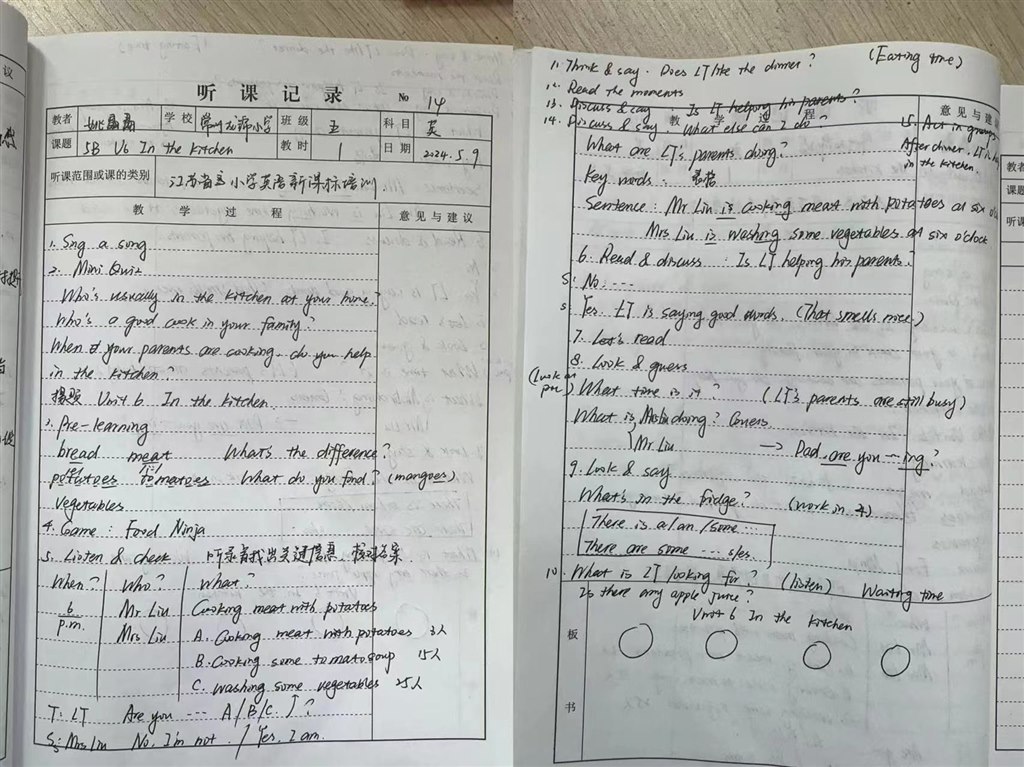 听 课 记 录 No 14
教者 学校 常州龙锦小学 班级 五 科目 英
课题 5B U6 In the kitchen 教时 1 日期 2024.5.9
听课范围或课的类别 江苏省 小学英语新课标培训
教 学 过 程 意见与建议
1. Sing a song
2. Mini Quiz
Who's usually in the kitchen at your home?
Who's a good cook in your family?
When your parents are cooking, do you help
in the kitchen?
揭题 Unit 6 In the kitchen.
3. Pre-learning
bread meat What's the difference?
potatoes tomatoes What do you find? (mangoes)
vegetables
4. Game: Food Ninja
5. Listen & check 听录音找出关键信息 核对答案
When? Who? What?
6 p.m. Mr Liu Cooking meat with potatoes
Mrs Liu A. Cooking meat with potatoes 3人
B. Cooking some tomato soup 15人
C. washing some vegetables 25人
T: LT Are you --- A/B/C ↑?
S: Mrs Liu No, I'm not. / Yes, I am.
11. Think & say. Does LT like the dinner? (Eating time)
12. Read the moments
13. Discuss & say: Is LT helping his parents?
教 学 过 程 意见与建议
14. Discuss & say. What else can I do? 15. Act in groups
What are LT's parents doing? After dinner, LT is
in the kitchen.
Key words:
Sentence: Mr Liu is cooking meat with potatoes at six o'clock
Mrs Liu is washing some vegetables at six o'clock
6. Read & discuss: Is LT helping his parents?
S: No, ---
S: Yes. LT is saying good words. (That smells nice.)
7. Let's read
8. Look & guess
(Look at pic) What time is it? (LT's parents are still busy)
What is Mrs Liu doing? Guess
Mr Liu → Dad, are you --- ing?
9. Look & say
What's in the fridge? (work in 4)
There is a/an/some ---
There are some --- s/es.
10. What is LT looking for? (listen) Waiting time
Is there any apple juice?
板书
Unit 6 In the kitchen